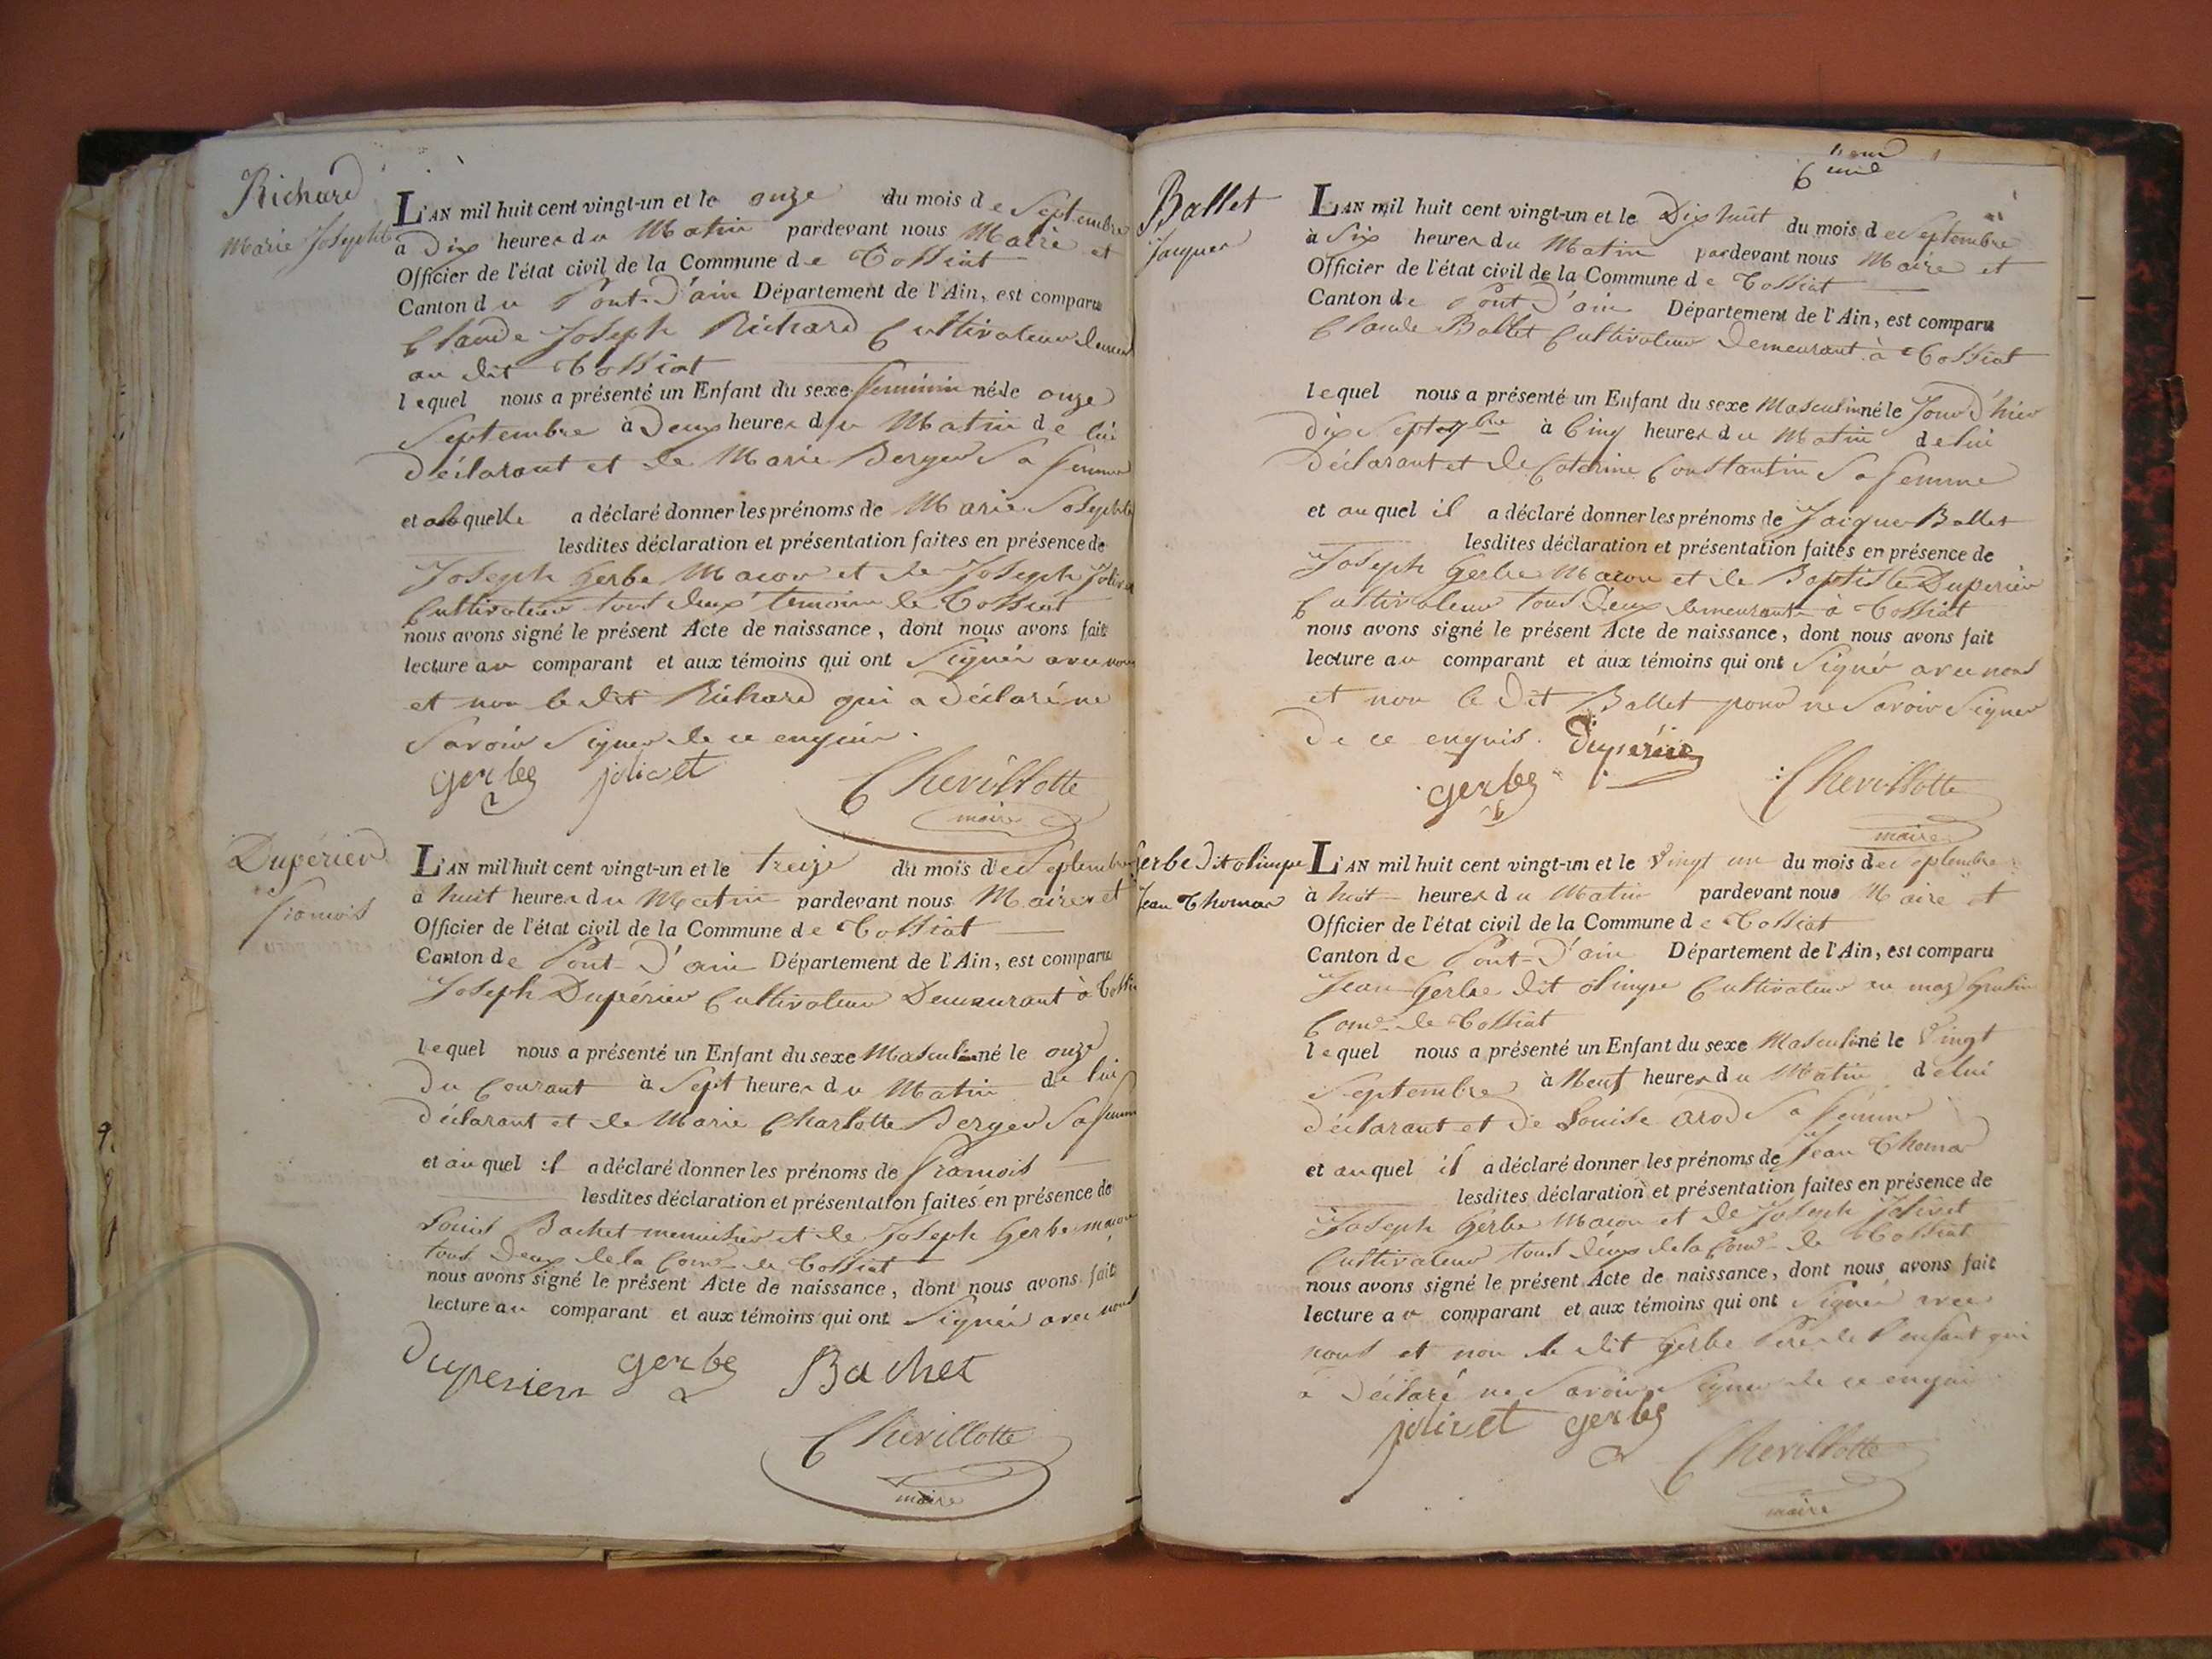 Richard
Marie Josephte
L'AN mil huit cent vingt-un et le onze du mois de Septembre
à Dix heures du Matin pardevant nous Maire et
Officier de l'état civil de la Commune de Tossiat
Canton du Pont-D'ain Département de l'Ain, est comparu
Claude Joseph Richard Cultivateur
au dit Tossiat
lequel nous a présenté un Enfant du sexe feminin née le onze
Septembre à Deux heures du Matin de lui
Déclarant et de Marie Berger Sa femme
et a laquelle a déclaré donner les prénoms de Marie Josephte
lesdites déclaration et présentation faites en présence de
Joseph Gerbe Macon et de Joseph Jolivet
Cultivateur tous deux temoins de Tossiat
nous avons signé le présent Acte de naissance, dont nous avons fait
lecture au comparant et aux témoins qui ont Signés avec nous
et non le dit Richard qui a Déclaré ne
Savoir Signer de ce enquis.
gerbe jolivet Chevillotte
maire
Dupérier
francois
L'AN mil huit cent vingt-un et le treize du mois de Septembre
à huit heures du Matin pardevant nous Maire et
Officier de l'état civil de la Commune de Tossiat
Canton de Pont-D'ain Département de l'Ain, est comparu
Joseph Dupérier Cultivateur Demeurant à Tossiat
lequel nous a présenté un Enfant du sexe Masculin né le onze
Du Courant à Sept heures du Matin de lui
Déclarant et de Marie Charlotte Berger Sa femme
et auquel il a déclaré donner les prénoms de francois
lesdites déclaration et présentation faites en présence de
Louis Bachet menuisier et de Joseph Gerbe macon
tous Deux de la Come de Tossiat
nous avons signé le présent Acte de naissance, dont nous avons fait
lecture au comparant et aux témoins qui ont Signés avec nous
duperier gerbe Bachet
Chevillotte
maire
Ballet
Jacques
L'AN mil huit cent vingt-un et le Dix huit du mois de Septembre
à Six heures du Matin pardevant nous Maire et
Officier de l'état civil de la Commune de Tossiat
Canton de Pont D'ain Département de l'Ain, est comparu
Claude Ballet Cultivateur Demeurant à Tossiat
lequel nous a présenté un Enfant du sexe Masculin né le Jour D'hier
Dix Sept à Cinq heures du Matin de lui
Déclarant et de Caterine Constantin Sa femme
et auquel il a déclaré donner les prénoms de Jacques Ballet
lesdites déclaration et présentation faites en présence de
Joseph Gerbe Macon et de Baptiste Dupérier
Cultivateur tous Deux demeurant à Tossiat
nous avons signé le présent Acte de naissance, dont nous avons fait
lecture au comparant et aux témoins qui ont Signé avec nous
et non le Dit Ballet pour ne Savoir Signer
De ce enquis. Dupérier
gerbe Chevillotte
maire
Gerbe Dit olimpe
Jean Thomas
L'AN mil huit cent vingt-un et le Vingt un du mois de Septembre
à huit heures du Matin pardevant nous Maire et
Officier de l'état civil de la Commune de Tossiat
Canton de Pont-D'ain Département de l'Ain, est comparu
Jean Gerbe Dit olimpe Cultivateur au
Come de Tossiat
lequel nous a présenté un Enfant du sexe Masculin né le Vingt
Septembre à Neuf heures du Matin de lui
Déclarant et de Louise arod Sa femme
et auquel il a déclaré donner les prénoms de Jean Thomas
lesdites déclaration et présentation faites en présence de
Joseph Gerbe Macon et de Joseph Jolivet
Cultivateur tous Deux de la Come de Tossiat
nous avons signé le présent Acte de naissance, dont nous avons fait
lecture au comparant et aux témoins qui ont Signés avec
nous et non le dit Gerbe Pere de l'enfant qui
a Déclaré ne Savoir Signer de ce enquis
jolivet gerbe
Chevillotte
maire